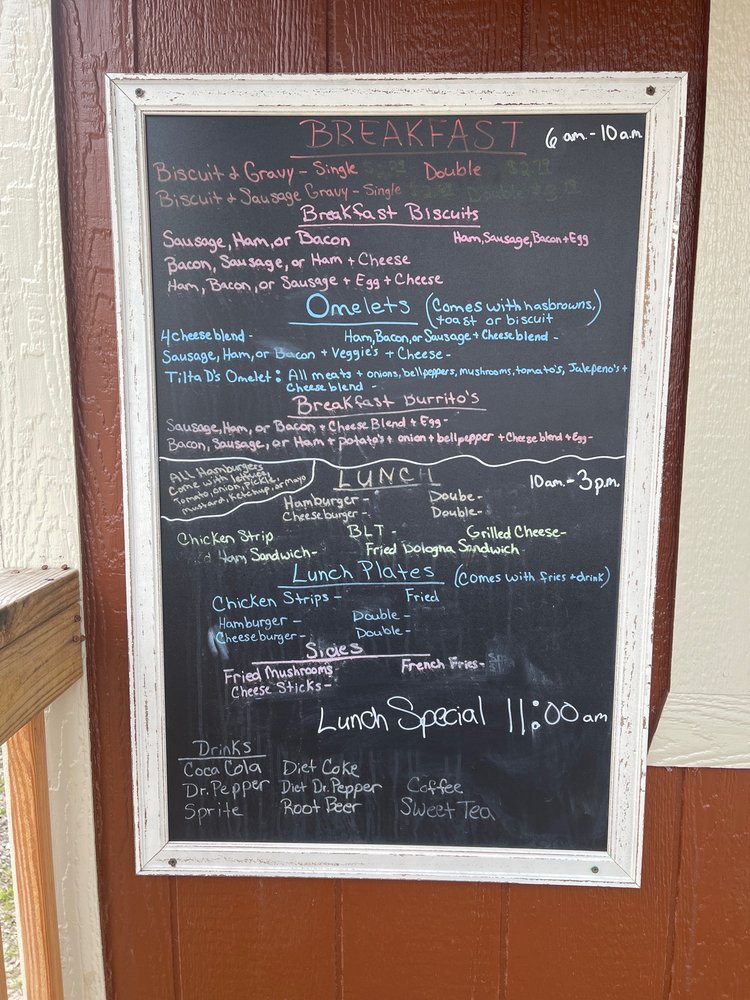 BREAKFAST 6 am. - 10 a.m
Biscuit & Gravy - Single Double
Biscuit & Sausage Gravy - Single Double
Breakfast Biscuits
Sausage, Ham, or Bacon Ham, Sausage, Bacon + Egg
Bacon, Sausage, or Ham + Cheese
Ham, Bacon, or Sausage + Egg + Cheese
Omelets (Comes with hasbrowns, toast or biscuit)
4 cheese blend - Ham, Bacon, or Sausage + Cheese blend -
Sausage, Ham, or Bacon + Veggie's + Cheese -
Tilta D's Omelet : All meats + onions, bellpeppers, mushrooms, tomato's, Jalepeno's +
Cheese blend -
Breakfast Burrito's
Sausage, Ham, or Bacon + Cheese Blend + Egg -
Bacon, Sausage, or Ham + potato's + onion + bellpepper + Cheese blend + Egg -
ALL Hamburgers
Come with lettuce,
Tomato, onion, Pickle,
mustard, Ketchup, or Mayo
LUNCH 10 am. - 3 p.m.
Hamburger - Doube -
Cheeseburger - Double -
Chicken Strip BLT Grilled Cheese -
Ham Sandwich - Fried bologna Sandwich
Lunch Plates (Comes with fries + drink)
Chicken Strips - Fried
Hamburger - Double -
Cheeseburger - Double -
Sides
Fried Mushrooms French Fries -
Cheese Sticks -
Lunch Special 11:00 am
Drinks
Coca Cola Diet Coke
Dr. Pepper Diet Dr. Pepper Coffee
Sprite Root Beer Sweet Tea